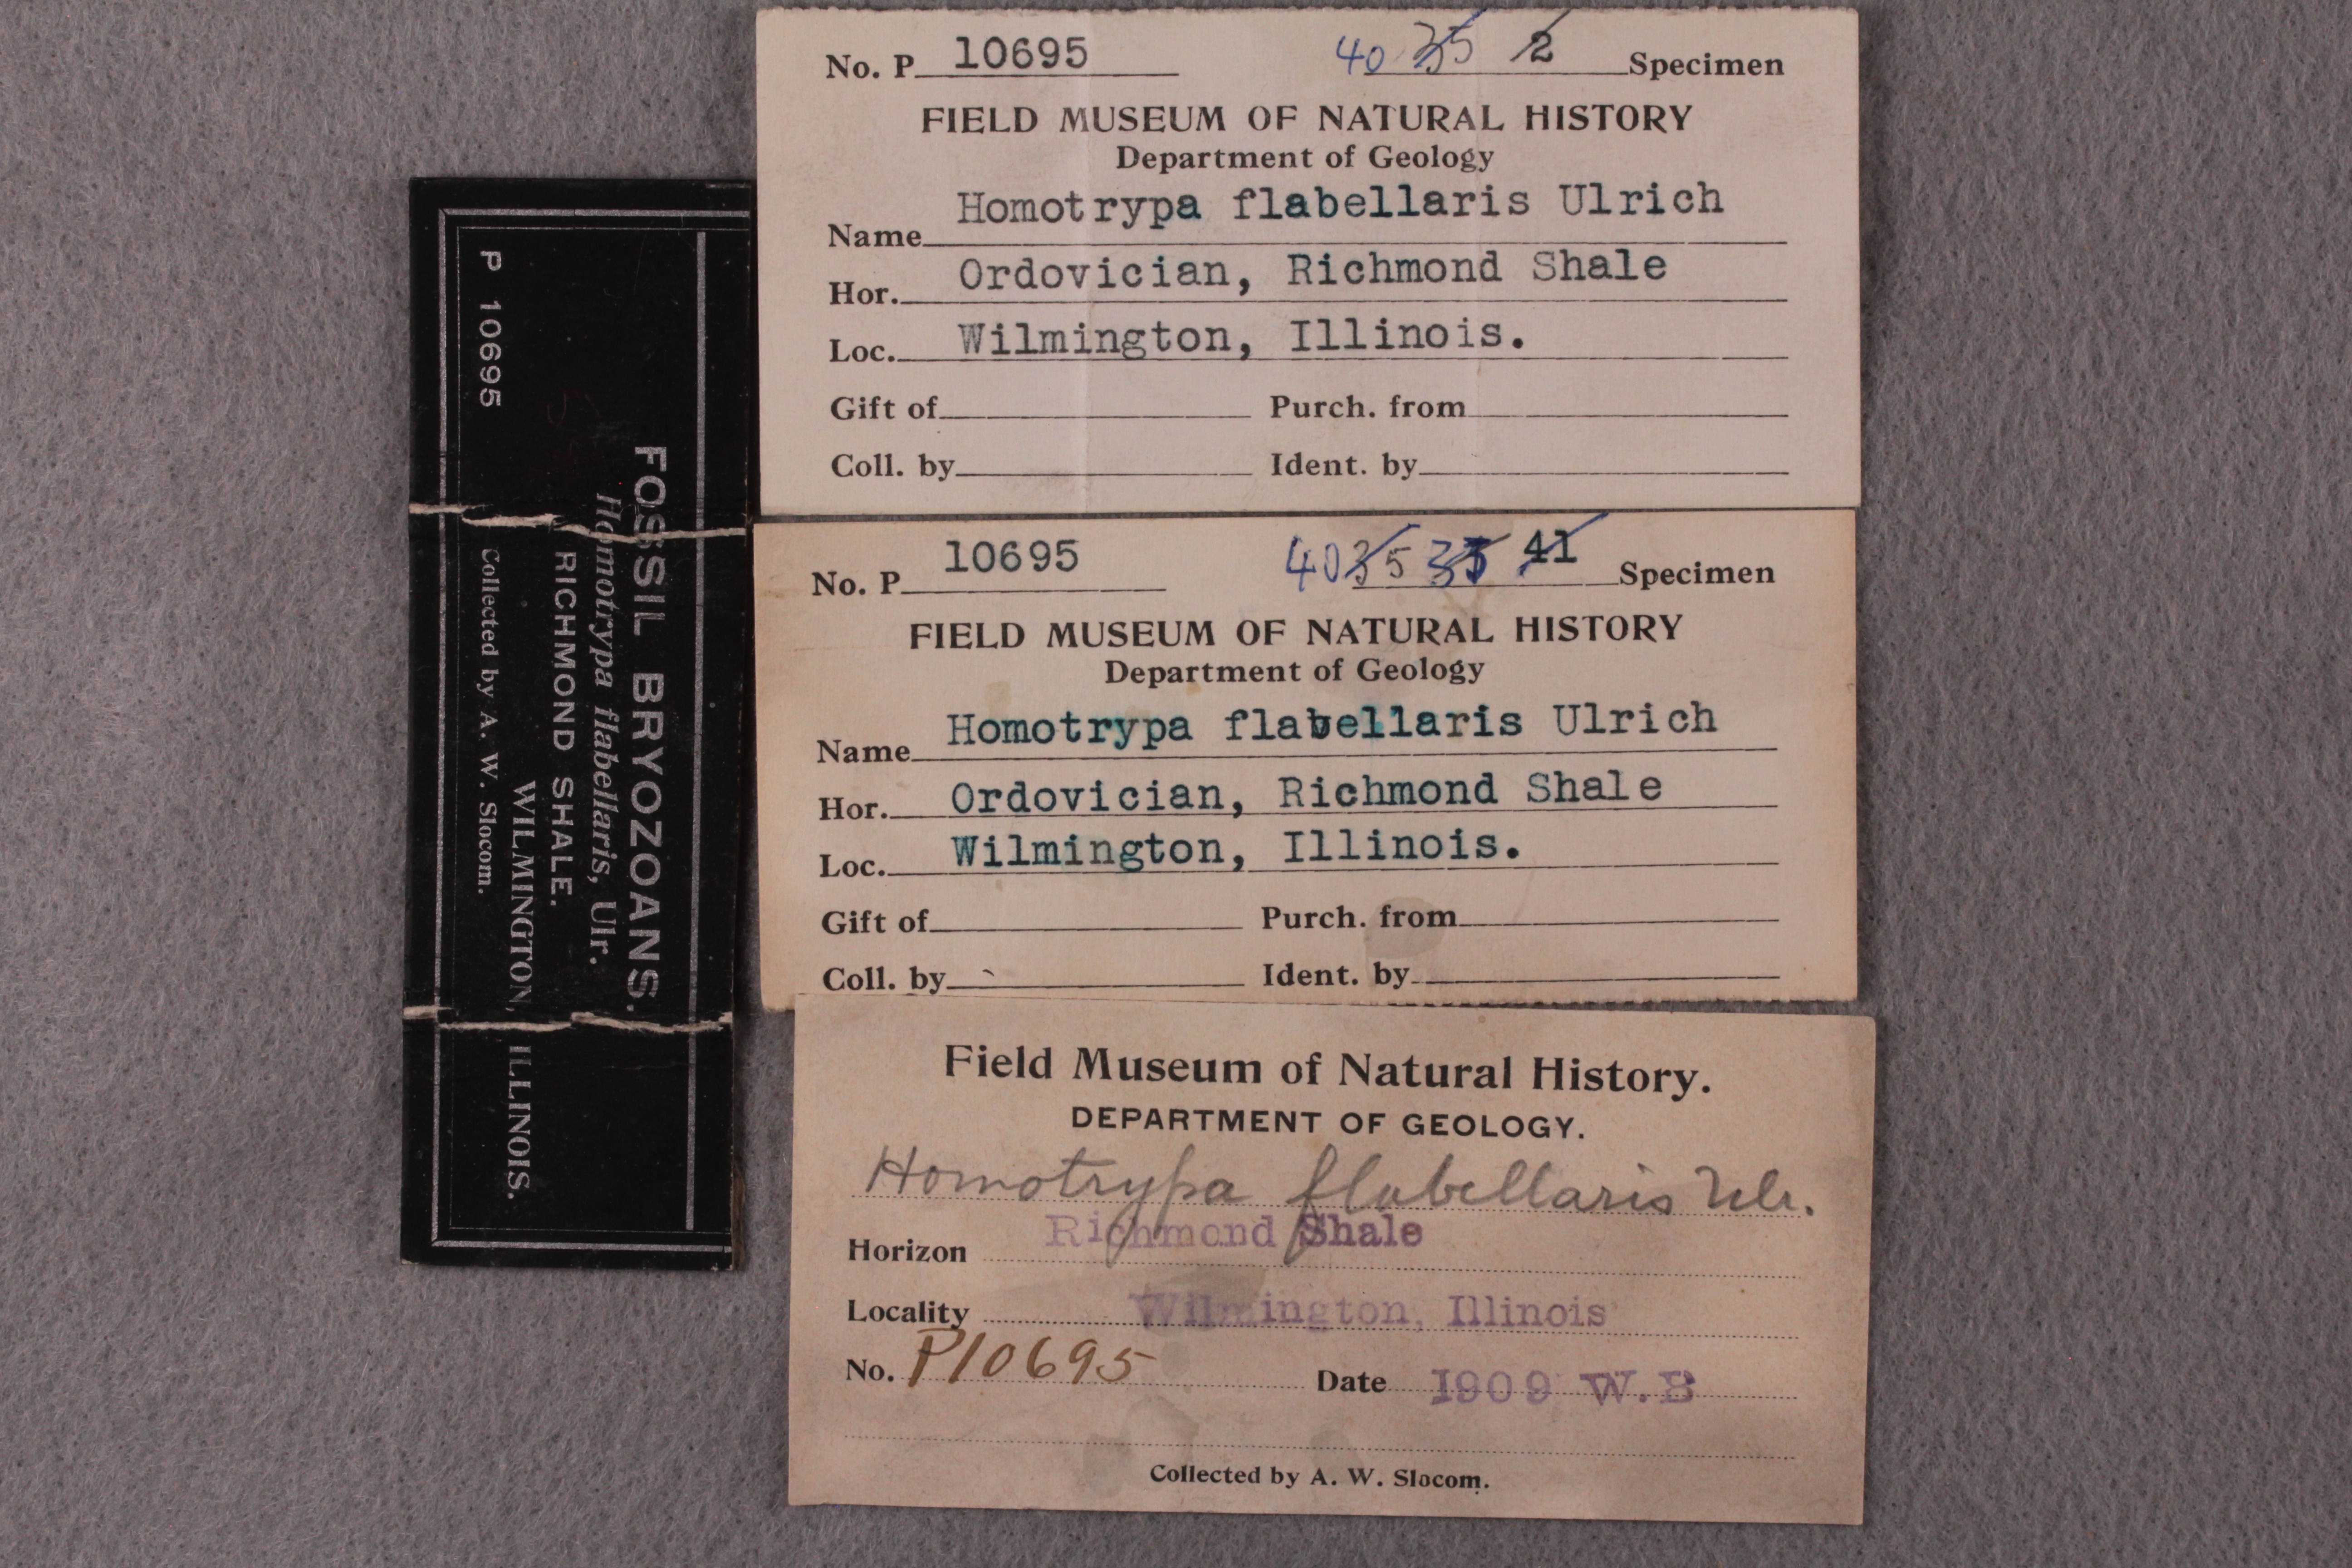 P 10695
FOSSIL BRYOZOANS.
Homotrypa flabellaris, Ulr.
RICHMOND SHALE.
WILMINGTON, ILLINOIS.
Collected by A. W. Slocom.
No. P 10695 40 35 2 Specimen
FIELD MUSEUM OF NATURAL HISTORY
Department of Geology
Name Homotrypa flabellaris Ulrich
Hor. Ordovician, Richmond Shale
Loc. Wilmington, Illinois.
Gift of Purch. from
Coll. by Ident. by
No. P 10695 40 35 35 41 Specimen
FIELD MUSEUM OF NATURAL HISTORY
Department of Geology
Name Homotrypa flabellaris Ulrich
Hor. Ordovician, Richmond Shale
Loc. Wilmington, Illinois.
Gift of Purch. from
Coll. by Ident. by
Field Museum of Natural History.
DEPARTMENT OF GEOLOGY.
Homotrypa flabellaris Ulr.
Horizon Richmond Shale
Locality Wilmington, Illinois
No. P10695 Date 1909 W.B
Collected by A. W. Slocom.